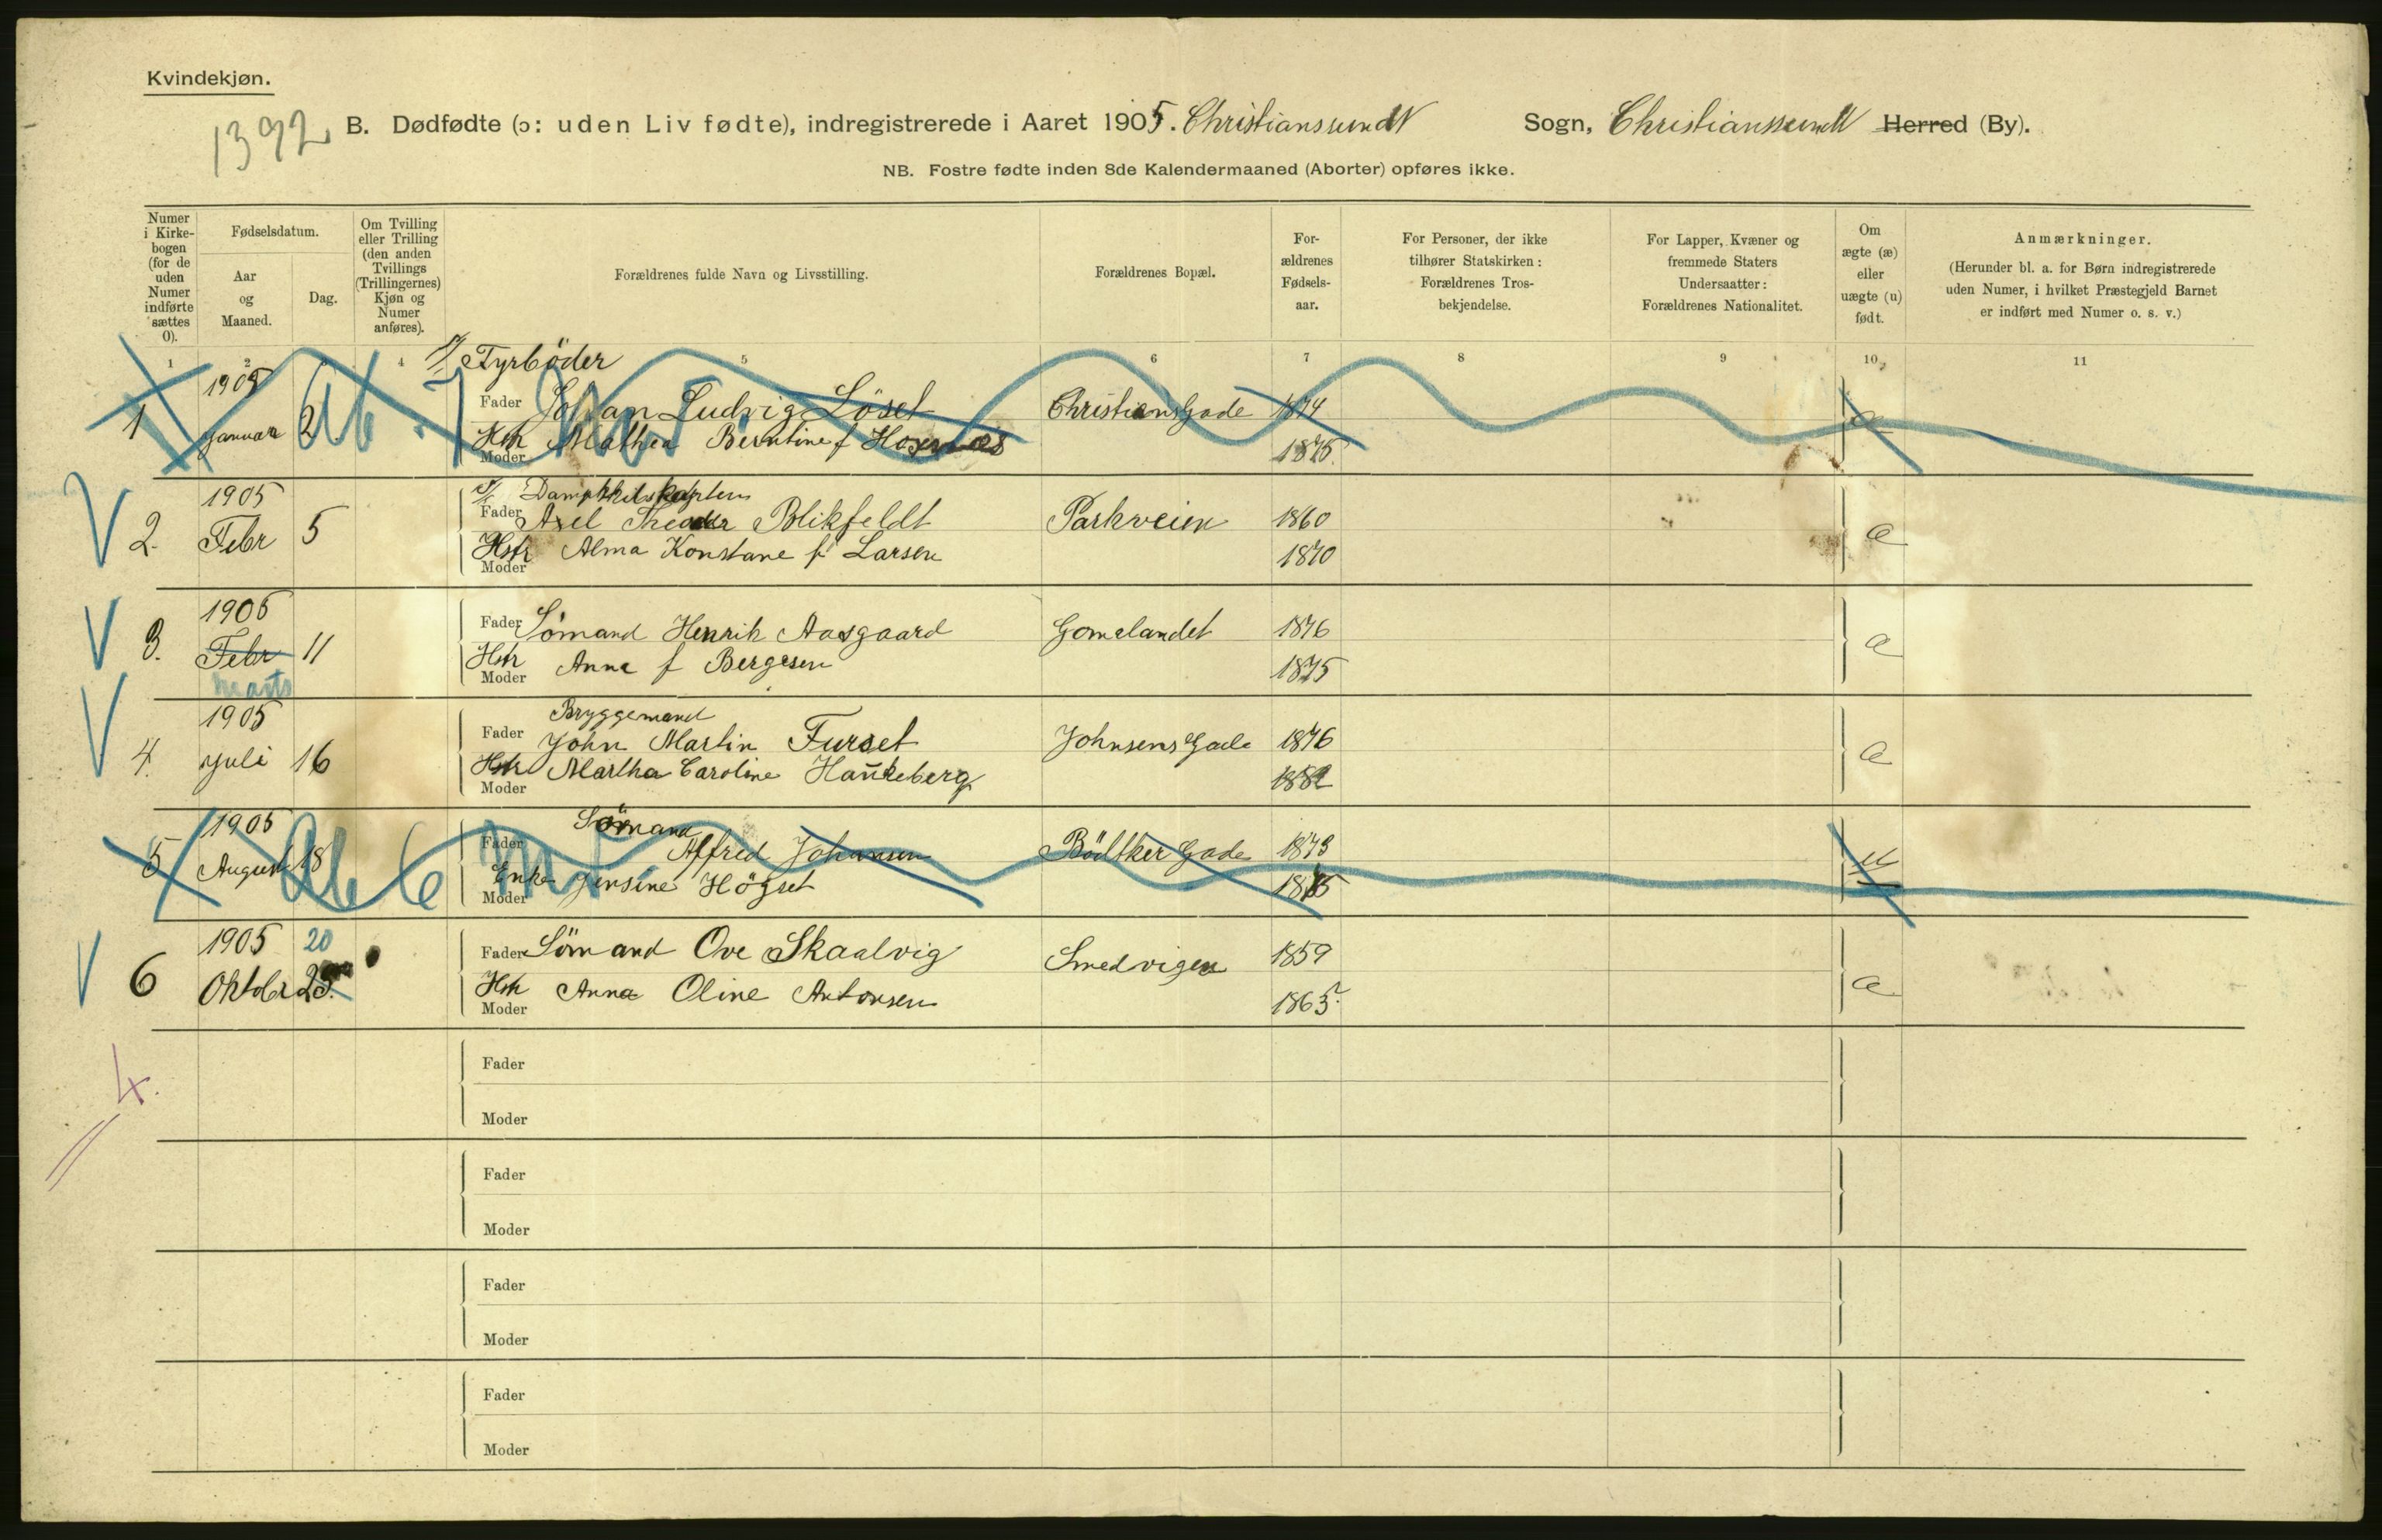 Kvindekjøn.
1392
B. Dødfødte (ɔ: uden Liv fødte), indregistrerede i Aaret 1905. Christianssund N Sogn, Christianssund N Herred (By).
NB. Fostre fødte inden 8de Kalendermaaned (Aborter) opføres ikke.
Numer i Kirke-bogen (for de uden Numer indførte sættes 0).
Fødselsdatum.
Aar og Maaned.
Dag.
Om Tvilling eller Trilling (den anden Tvillings (Trillingernes) Kjøn og Numer anføres).
Forældrenes fulde Navn og Livsstilling.
Forældrenes Bopæl.
For-ældrenes Fødsels-aar.
For Personer, der ikke tilhører Statskirken: Forældrenes Tros-bekjendelse.
For Lapper, Kvæner og fremmede Staters Undersaatter: Forældrenes Nationalitet.
Om ægte (æ) eller uægte (u) født.
Anmærkninger.
(Herunder bl. a. for Børn indregistrerede uden Numer, i hvilket Præstegjeld Barnet er indført med Numer o. s. v.)
1 2 4 5 6 7 8 9 10 11
Fyrböder
1 1905 Januar 2 Fader Johan Ludvig Löset Christians Gade 1874
Hstr Moder Mathea Berntine f 1875
Ab
2. 1905 Febr 5 Dampskibskaptein
Fader Axel Theodor Blikfeldt Parkveien 1860 æ
Hstr Moder Alma Konstane f Larsen 1870
3. 1905 Febr Marts 11 Fader Sömand Henrik Aasgaard Gomalandet 1876 æ
Hstr Moder Anna f Bergesen 1875
4. 1905 Juli 16 Bryggemand
Fader John Martin Furset Johnsens Gade 1876 æ
Hstr Moder Martha Caroline Hankeberg 1882
5 1905 August 18 Sömand
Fader Alfred Johansen Bödtker Gade 1873 u
Enke Moder Jensine Högset 1875
Ab 6
6 1905 Oktobr 20 Fader Sömand Ove Skaalvig Smedvigen 1859 æ
Hstr Moder Anna Oline Antonsen 1863
4.
Fader
Moder
Fader
Moder
Fader
Moder
Fader
Moder